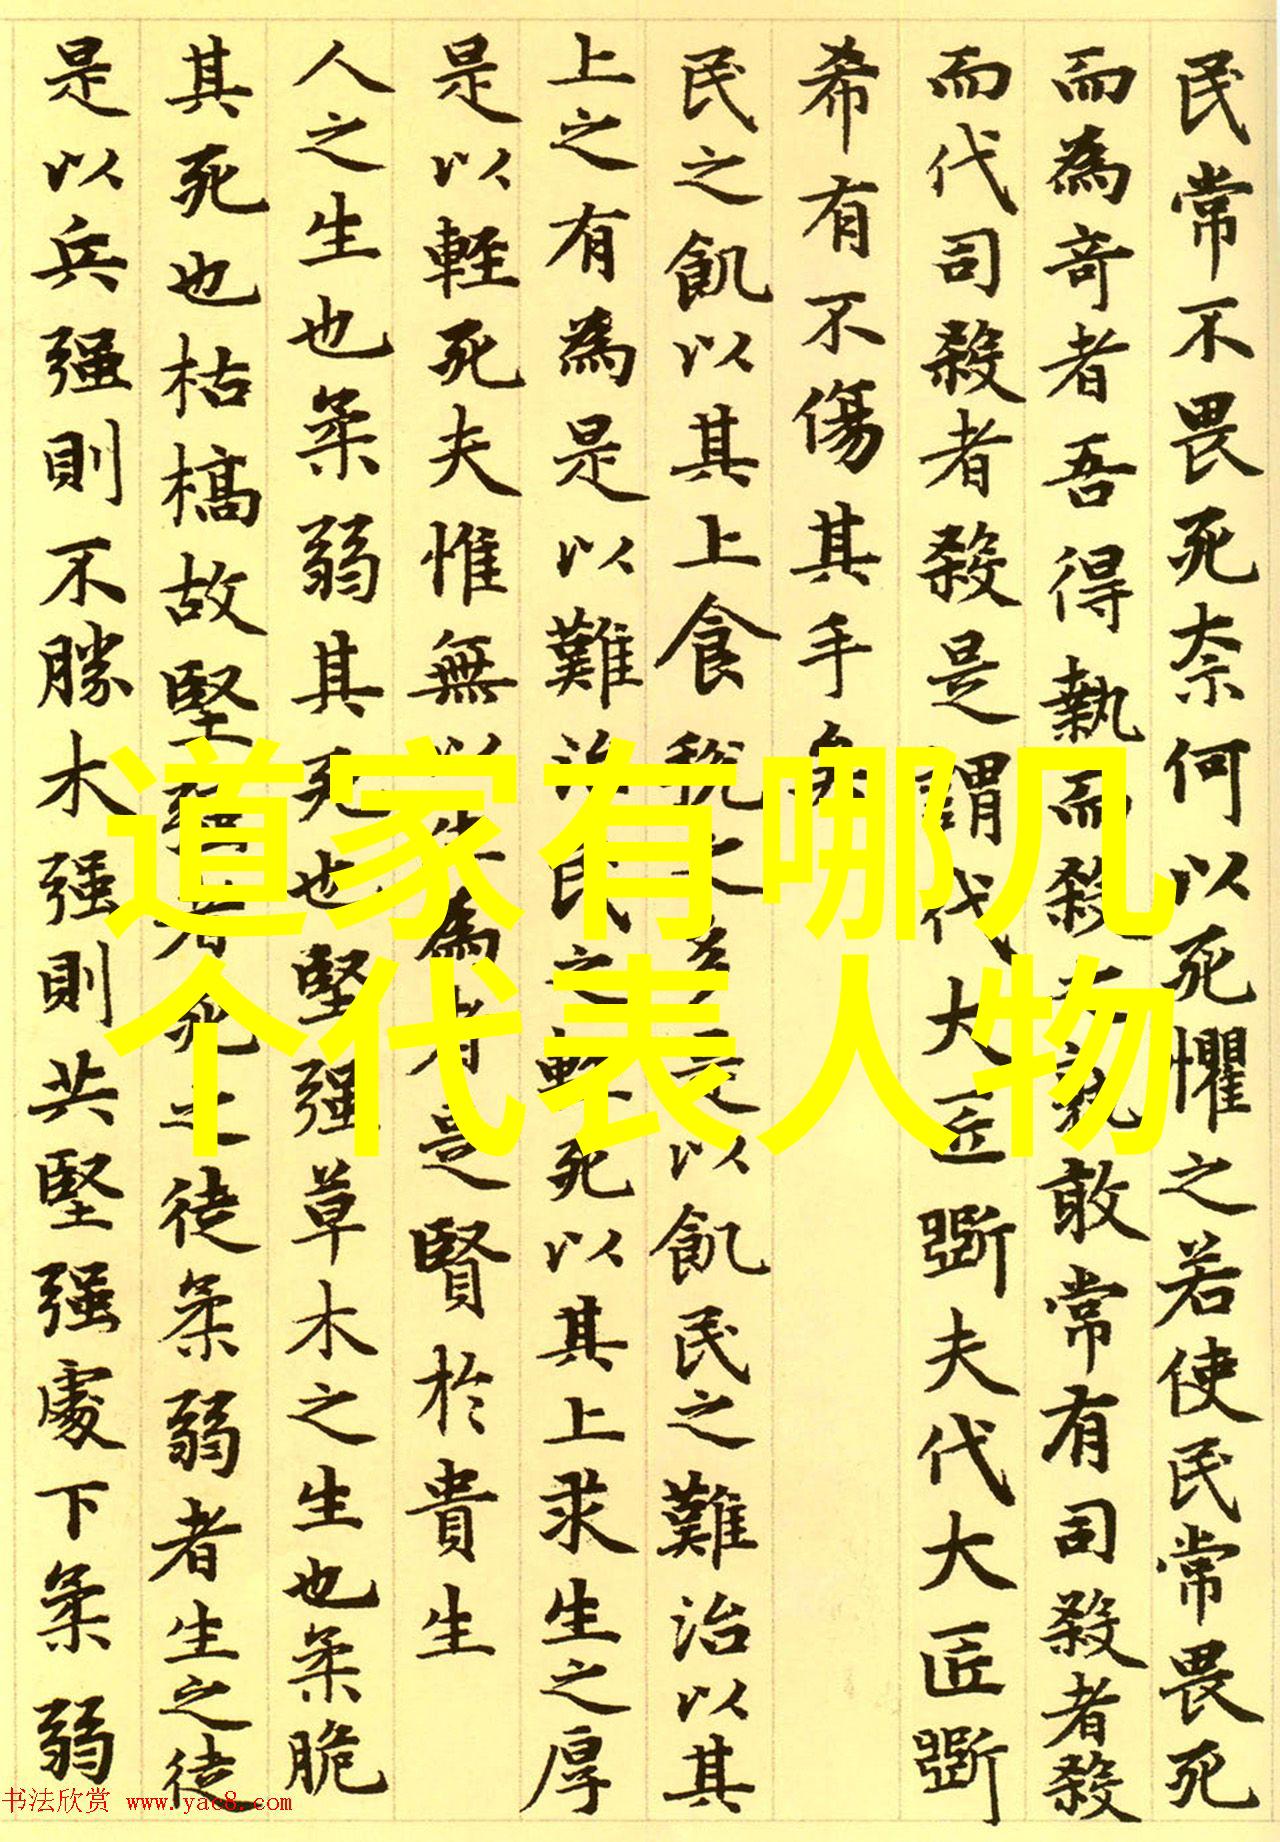 民常不畏死奈何以死懼之若使民常畏死
而為奇者吾得執而殺之孰敢常有司殺者殺
而代司殺者殺是謂代大匠斲夫代大匠斲
希有不傷其手矣
民之飢以其上食稅之多是以飢民之難治以其
上之有為是以難治民之輕死以其上求生之厚
是以輕死夫惟無以生為者是賢於貴生
人之生也柔弱其死也堅强草木之生也柔脆
其死也枯槁故堅强者死之徒柔弱者生之徒
是以兵强則不勝木强則共堅强處下柔弱
道家有哪几
个代表人物
书法欣赏 www.yac8.com